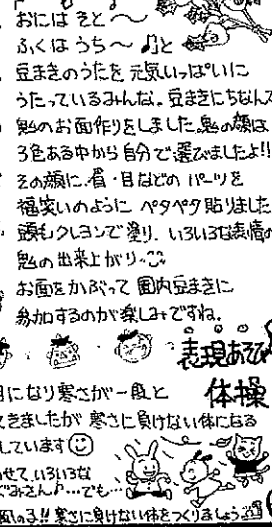 おにはそと〜
ふくはうち〜♪と
豆まきのうたを元気いっぱいに
うたっているみんな。豆まきにちなんで
鬼のお面作りをしました。鬼の顔は
3色ある中から自分で選びましたよ!!
その顔に、眉・目などのパーツを
福笑いのようにペタペタ貼りました
頭もクレヨンで塗り、いろいろな表情の
鬼の出来上がり〜
お面をかぶって園内豆まきに
参加するのが楽しみですね。
表現あそび
体操
になり寒さが一段と
てきましたが寒さに負けない体になる
しています
せて、いろいろな
ぐみさん♪…でも…
!!寒さに負けない体をつくりましょう